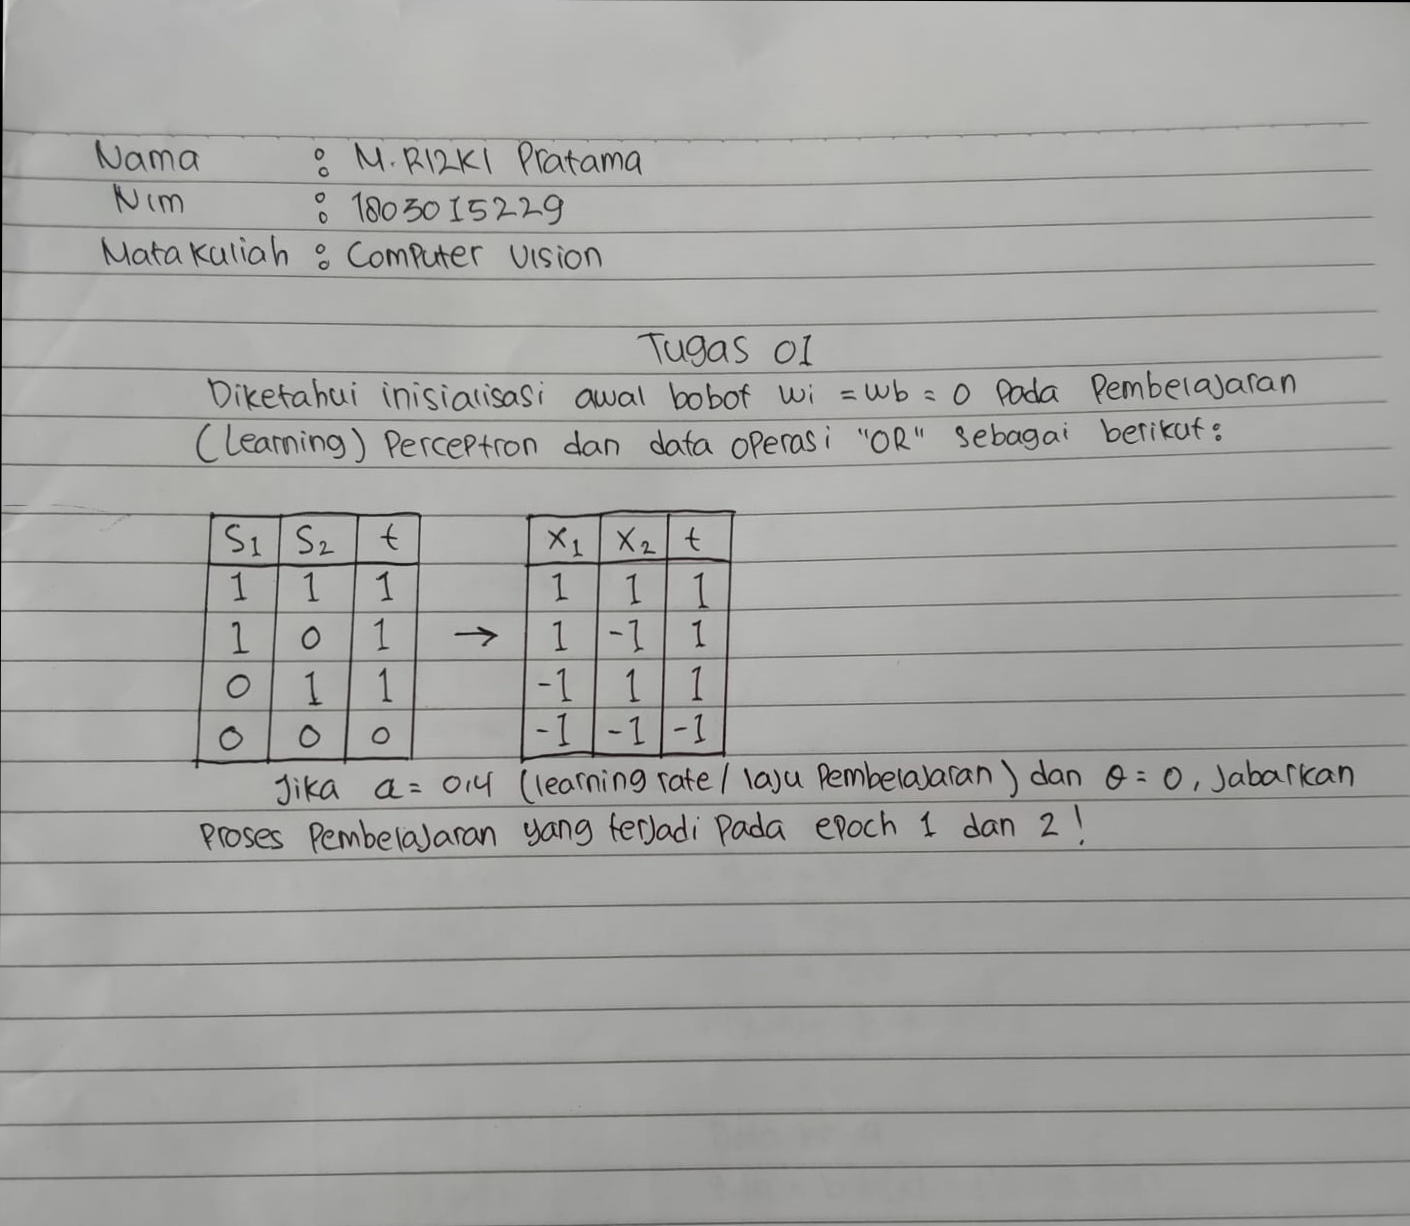 Nama : M. RIZKI Pratama
Nim : 1803015229
Matakuliah : Computer Vision
Tugas 01
Diketahui inisialisasi awal bobot wi = wb = 0 Pada Pembelajaran
(Learning) Perceptron dan data operasi "OR" sebagai berikut:
S1 S2 t x1 x2 t
1 1 1 1 1 1
1 0 1 → 1 -1 1
0 1 1 -1 1 1
0 0 0 -1 -1 -1
Jika a = 0,4 (learning rate / laju Pembelajaran) dan θ = 0, Jabarkan
Proses Pembelajaran yang terjadi Pada epoch 1 dan 2!